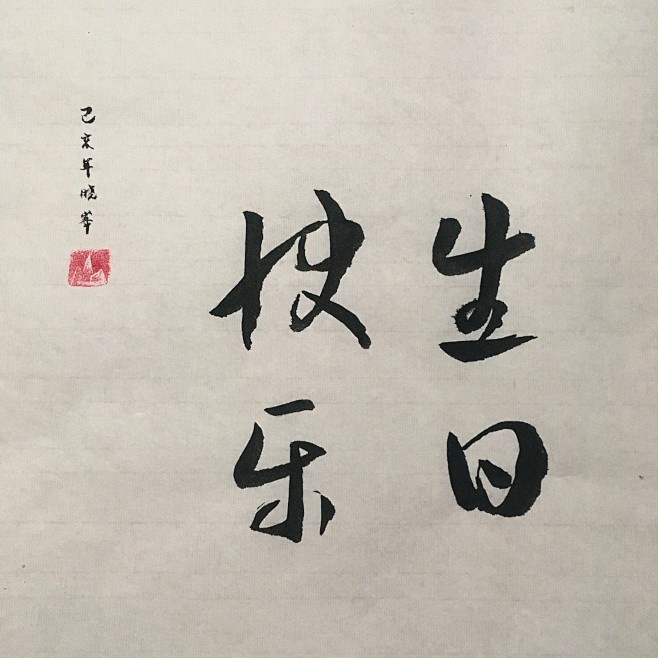 生日
快乐
己亥年晓峰